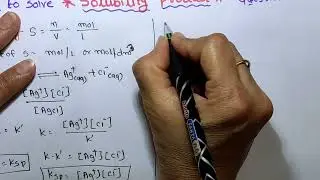 to solve * Solubility product
S = n/v = mol/L
of S = mol/L or mol/dm³
⇌ Ag⁺(aq) + Cl⁻(aq)
[Ag⁺][Cl⁻]
[AgCl]
= K' K = [Ag⁺][Cl⁻]/K'
K·K' = [Ag⁺][Cl⁻]
= Ksp Ksp = [Ag⁺][Cl⁻]